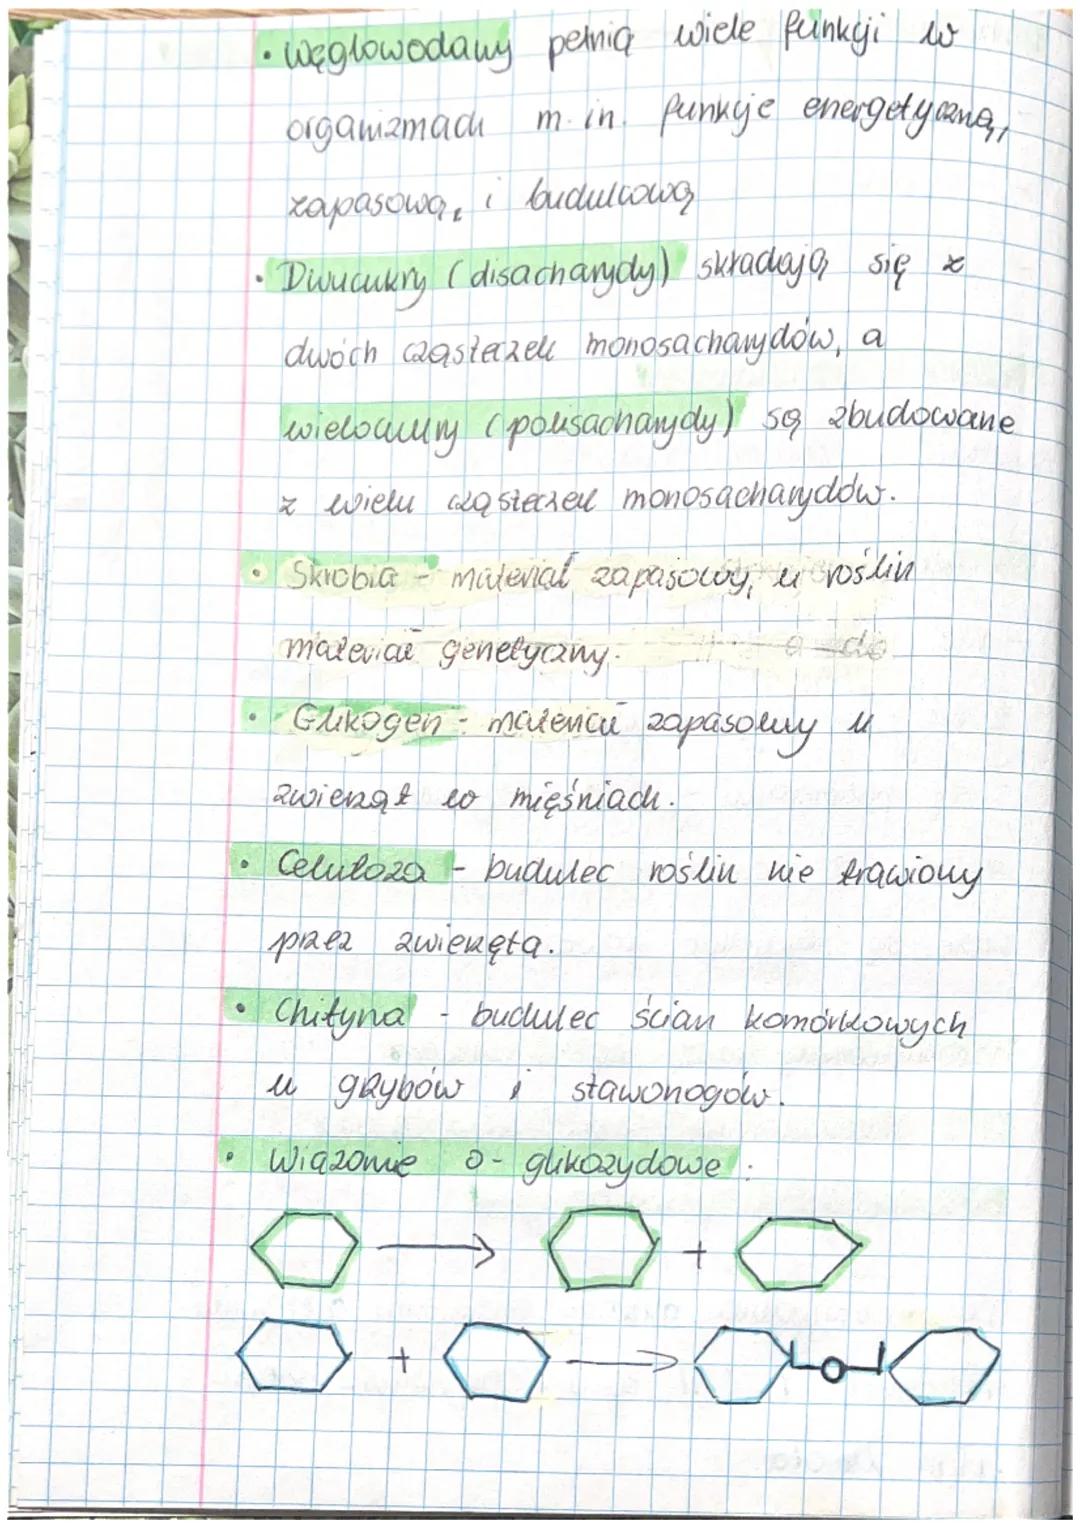 • Węglowodany pełnią wiele funkcji w
organizmach m.in. funkcje energetyczną,
zapasową, i budulcową
• Dwucukry (disacharydy) składają się z
dwóch cząsteczek monosacharydów, a
wielocukry (polisacharydy) są zbudowane
z wielu cząsteczek monosacharydów.
• Skrobia - materiał zapasowy, u roślin
materiał genetyczny.
• Glikogen - materiał zapasowy u
zwierząt w mięśniach.
• Celuloza - budulec roślin nie trawiony
przez zwierzęta.
• Chityna - budulec ścian komórkowych
u grzybów i stawonogów.
• Wiązanie O-glikozydowe:
+
+ O